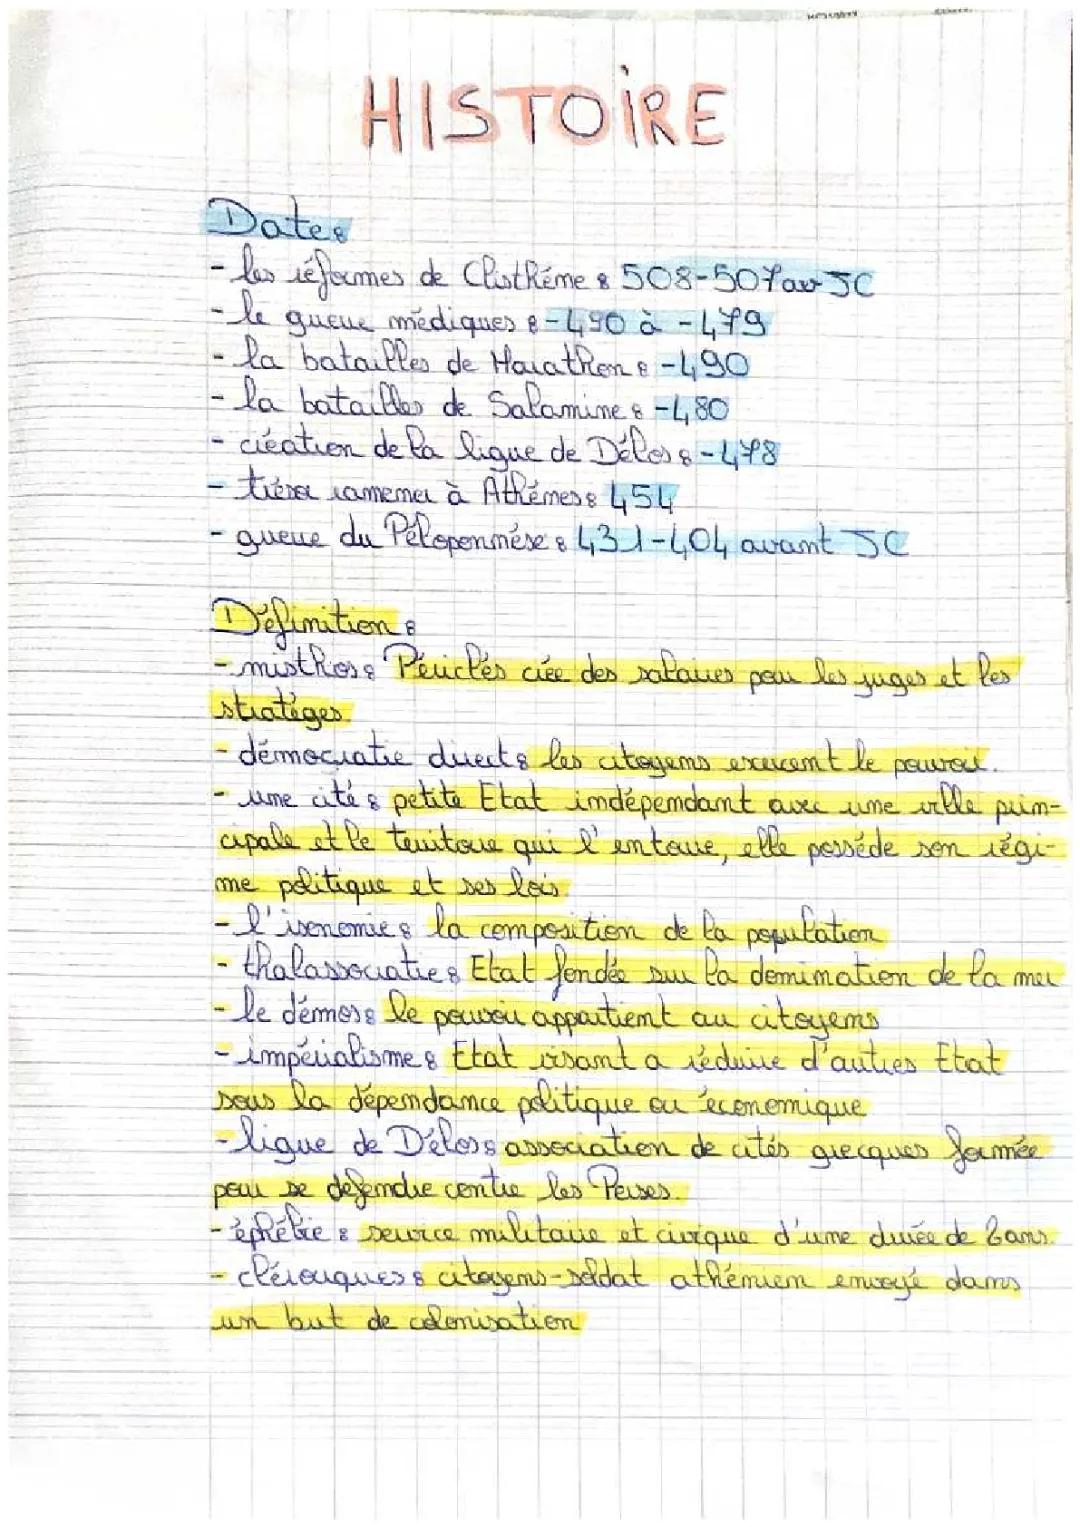 HISTOIRE
Dates
- les réformes de Clisthéme : 508-507 av JC
- le guerre médiques : -490 à -479
- la batailles de Marathon : -490
- la batailles de Salamine : -480
- création de la ligue de Délos : -478
- trésor ramener à Athémes : 454
- guerre du Péloponnése : 431-404 avant JC
Définition :
- misthos : Périclés crée des salaires pour les juges et les
stratéges.
- démocratie direct : les citoyens exercent le pouvoir.
- une cité : petite Etat indépendant avec une ville prin-
cipale et le territoire qui l'entoure, elle posséde son régi-
me politique et ses lois.
- l'isonomie : la composition de la population
- thalassocratie : Etat fondée sur la domination de la mer
- le démos : le pouvoir appartient au citoyens
- impérialisme : Etat visant a réduire d'autres Etat
sous la dépendance politique ou économique
- ligue de Délos : association de cités grecques formée
pour se défendre contre les Perses.
- éphébie : service militaire et civique d'une durée de 2 ans.
- clérouques : citoyens-soldat athénien envoyé dans
un but de colonisation